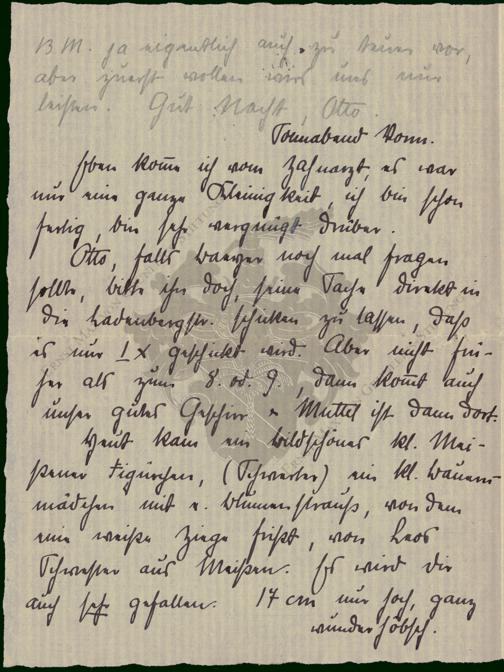 13 M. ja eigentlich auch zu teuer vor,
aber zuerst wollen wirs uns mal
leisten. Gut Nacht, Otto.
Sonnabend Vorm.
Eben komme ich vom Zahnarzt, es war
nur eine ganze Kleinigkeit, ich bin schon
fertig, bin sehr vergnügt drüber.
Otto, falls noch mal fragen
sollte, bitte ihn doch, seine Sache direkt in
die Ladenbergstr. schicken zu lassen, daß
es nur 1 x geschickt wird. Aber nicht frü-
her als zum 8. od. 9., dann kommt auch
unser gutes Geschirr u. Muttel ist dann dort.
Heut kam ein bildschönes kl. Mei-
ßener Figürchen, (Schwerter) ein kl. Bauern-
mädchen mit e. Blumenstrauß, von dem
eine weiße Ziege frißt, von Leos
Schwester aus Meißen. Es wird dir
auch sehr gefallen. 17 cm nur hoch, ganz
wunderhübsch.